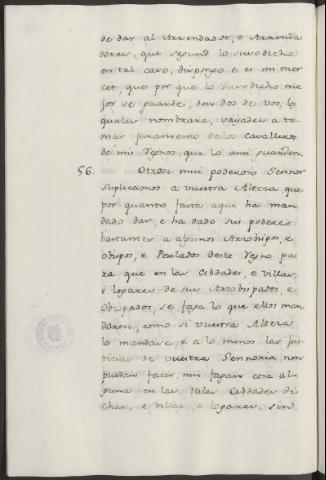 de dar al Arrendador, o Arrenda
dores, que segund lo susodicho
en tal caso, dispongo e es mi mer
cet, que por que lo susodicho me
jor se guarde, den dos de vos, los
quales nombrare, vayades a to-
mar juramento de los Cavalleros
de mis Regnos, que lo ansi guarden.
56. Otrosi mui poderoso Sennor
Suplicamos a vuestra Alteza que
por quanto fasta aqui ha man
dado dar, e ha dado sus poderes
bastantes a algunos Arzobispos, e
obispos, e Perlados deste Regno pa
ra que en las Cibdades, e villas,
e logares de sus Arzobispados, e
Obispados, se faga lo que ellos man
daren, como si vuestra Alteza
lo mandase, e a lo menos las Jus-
ticias de vuestra Sennoria non
puedan facer, nin fagan cosa al
guna en las tales Cibdades di-
chas, e villas, e logares, sin